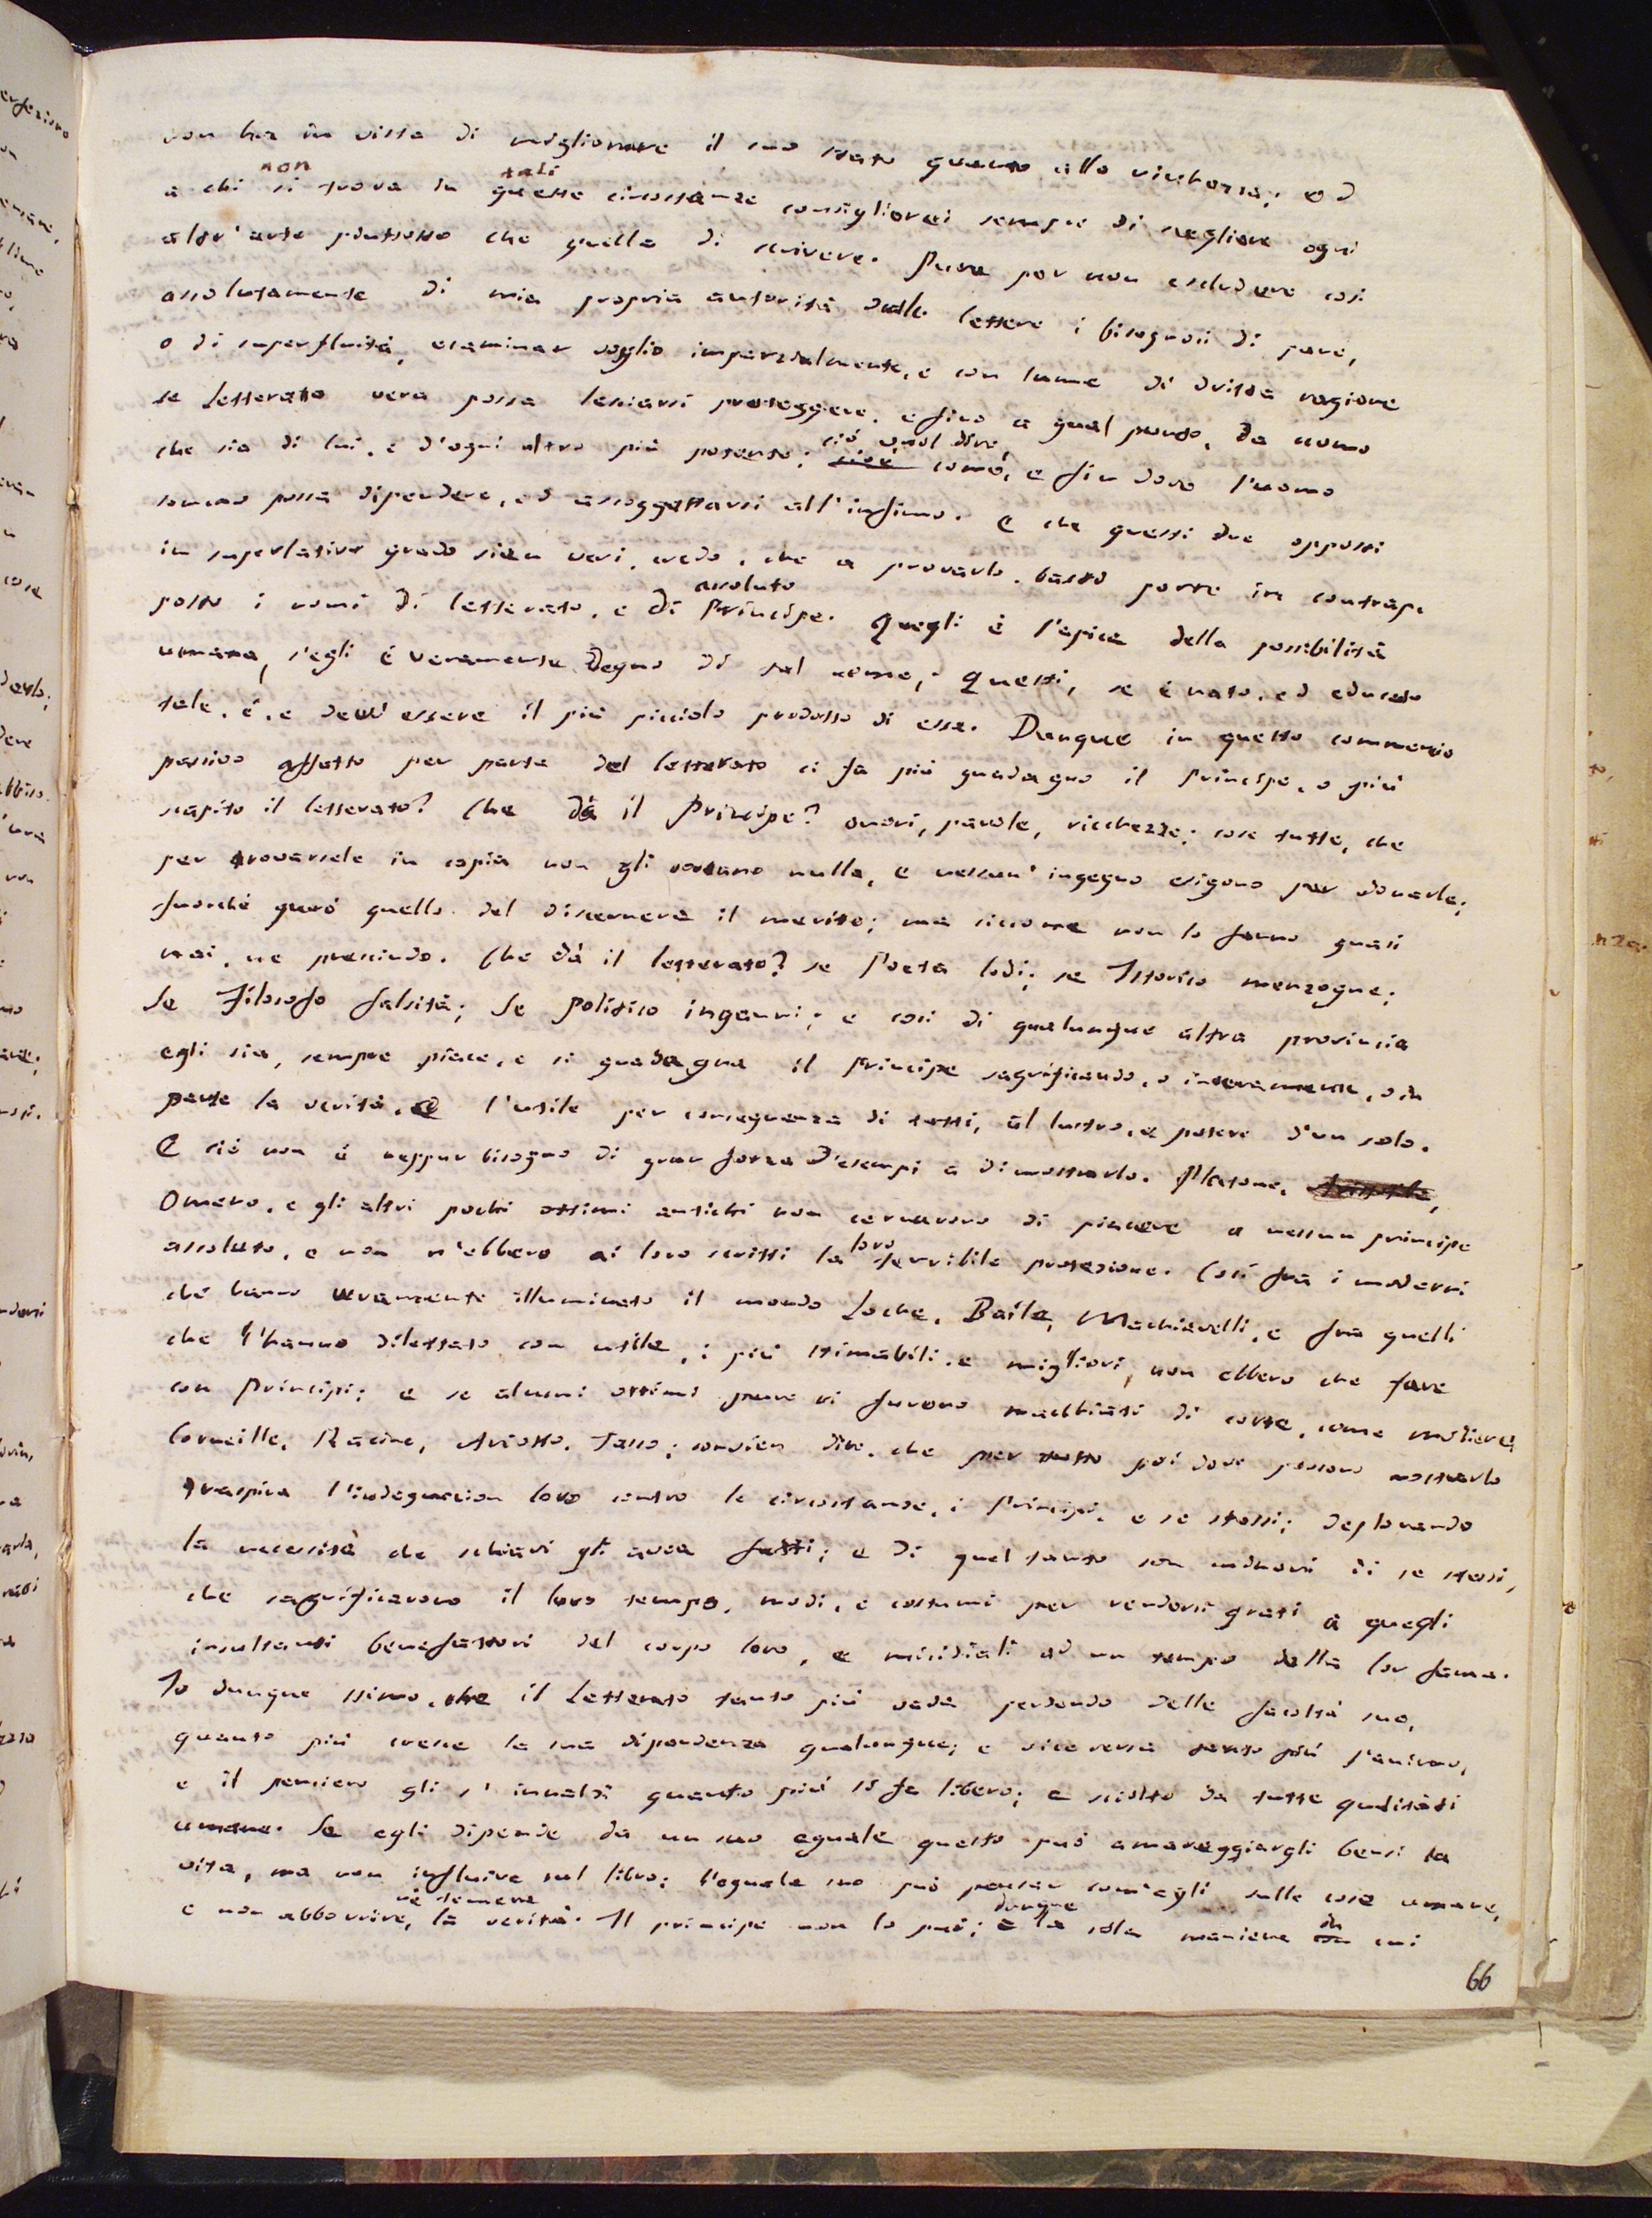 non ha in vista di migliorare il suo stato quanto alla ricchezza; ed
non tali
a chi si trova in queste circostanze consiglierei sempre di scegliere ogni
altr'arte piuttosto che quella di scrivere. Pure per non escludere così
assolutamente di mia propria autorità dalle lettere i bisognosi di pane,
o di superfluità, esaminar voglio imparzialmente, e con lume di dritta ragione
se letterato vero possa lasciarsi proteggere, e fino a qual punto, da uomo
che sia di lui, e d'ogni altro più potente; ciò vuol dire, come, e fin dove l'uomo
sommo possa dipendere, ed assoggettarsi all'infimo. E che questi due opposti
in superlativo grado sien veri, credo, che a provarlo, basti porre in contrap-
assoluto
posto i nomi di letterato, e di Principe. Quegli è l'apice della possibilità
umana, s'egli è veramente degno di tal nome; Questi, se è nato, ed educato
tale, è, e dev'essere il più picciolo prodotto di essa. Dunque in questo commercio
passivo affatto per parte del letterato ci fa più guadagno il principe, o più
scapito il letterato? Che dà il Principe? onori, parole, ricchezze; cose tutte, che
per trovarsele in copia non gli costano nulla, e nessun' ingegno esigono per donarle;
fuorché però quello del discernere il merito; ma siccome non lo fanno quasi
mai, ne prescindo. Che dà il letterato? se Poeta lodi; se Istorico menzogne;
Se Filosofo falsità; Se Politico inganni; e così di qualunque altra provincia
egli sia, sempre piace, e si guadagna il Principe sagrificando, o interamente, o in
parte la verità, e l'utile per conseguenza di tutti, al lustro, e potere d'un solo.
E ciò non è neppur bisogno di gran forza d'esempi a dimostrarlo. Platone,
Omero, e gli altri pochi ottimi antichi non cercarono di piacere a nessun principe
assoluto, e non n'ebbero ai loro scritti la loro terribile protezione. Così fra i moderni
che hanno veramente illuminato il mondo Loche, Baile, Machiavelli, e fra quelli
che l'hanno dilettato con utile, i più stimabili, e migliori, non ebbero che fare
con Principi; e se alcuni ottimi pure vi furono macchiati di corte, come Moliere,
Corneille, Racine, Ariosto, Tasso; convien dire, che per tutto poi dove possono mostrarlo
traspira l'indegnazion loro contro le circostanze, i Principi, e se stessi; deplorando
la necessità che schiavi gli avea fatti; e di quel tanto son minori di se stessi,
che sagrificarono il loro tempo, modi, e costumi per rendersi grati a quegli
insultanti benefattori del corpo loro, e micidiali ad un tempo della lor fama.
Io dunque stimo, che il Letterato tanto più vada perdendo delle facoltà sue,
quanto più cresce la sua dipendenza qualunque; e viceversa tanto più l'animo,
e il pensiero gli s'innalzi quanto più si fa libero; e sciolto da tutte qualitadi
umane. Se egli dipende da un suo eguale questo può amareggiargli bensì la
vita, ma non influire sul libro; l'eguale suo può pensar com'egli sulle cose umane,
né temere dunque in
e non abborrire, la verità. Il principe non lo può; è la sola maniera in cui
66